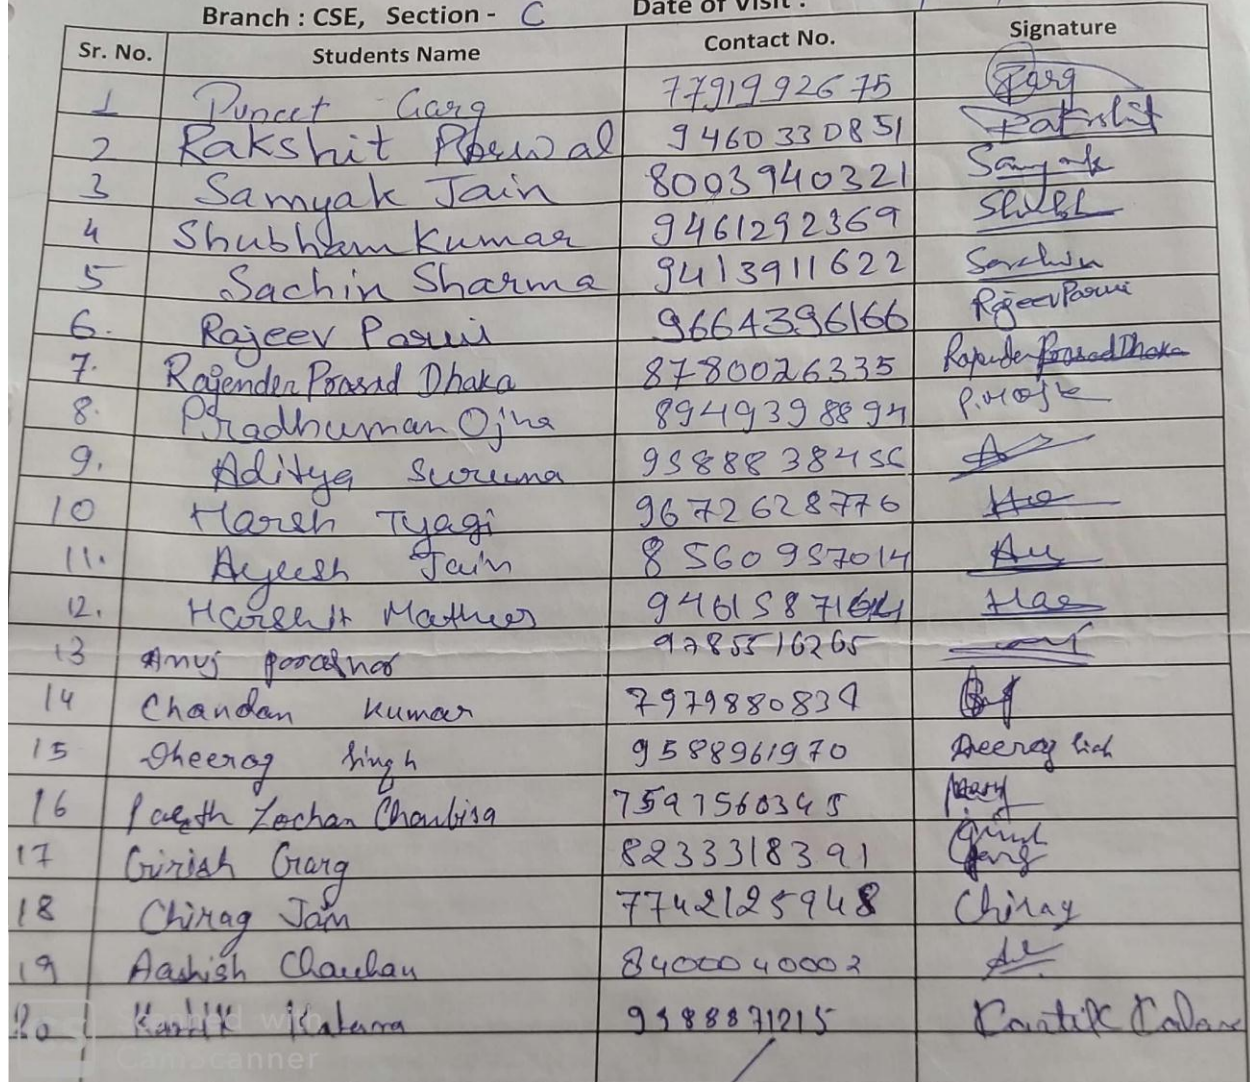 Branch : CSE, Section - C Date of Visit :
Sr. No. Students Name Contact No. Signature
1 Puneet Garg 7791992675 Garg
2 Rakshit Porwal 9460330851 Rakshit
3 Samyak Jain 8003940321 Samyak
4 Shubham Kumar 9461292369 Shubh
5 Sachin Sharma 9413911622 Sachin
6. Rajeev Parui 9664396166 Rajeev Parui
7. Rajender Prasad Dhaka 8780026335 Rajender Prasad Dhaka
8. Pradhuman Ojha 8949398894
9. Aditya 9588838456
10 Harsh Tyagi 9672628776
11. Ayush Jain 8560957014
12. Harshit Mathur
13 Anuj 9785516265
14 Chandan Kumar 7979880834
15 Dheeraj Singh 9588961970
16 Parth Lochan Choubisa 7597560345
17 Girish Garg 8233318391 Girish Garg
18 Chirag Jain 7742125948 Chirag
19 Aashish Chauhan 8400040002
20 Kartik 9588871215 Kartik
Scanned with
CamScanner